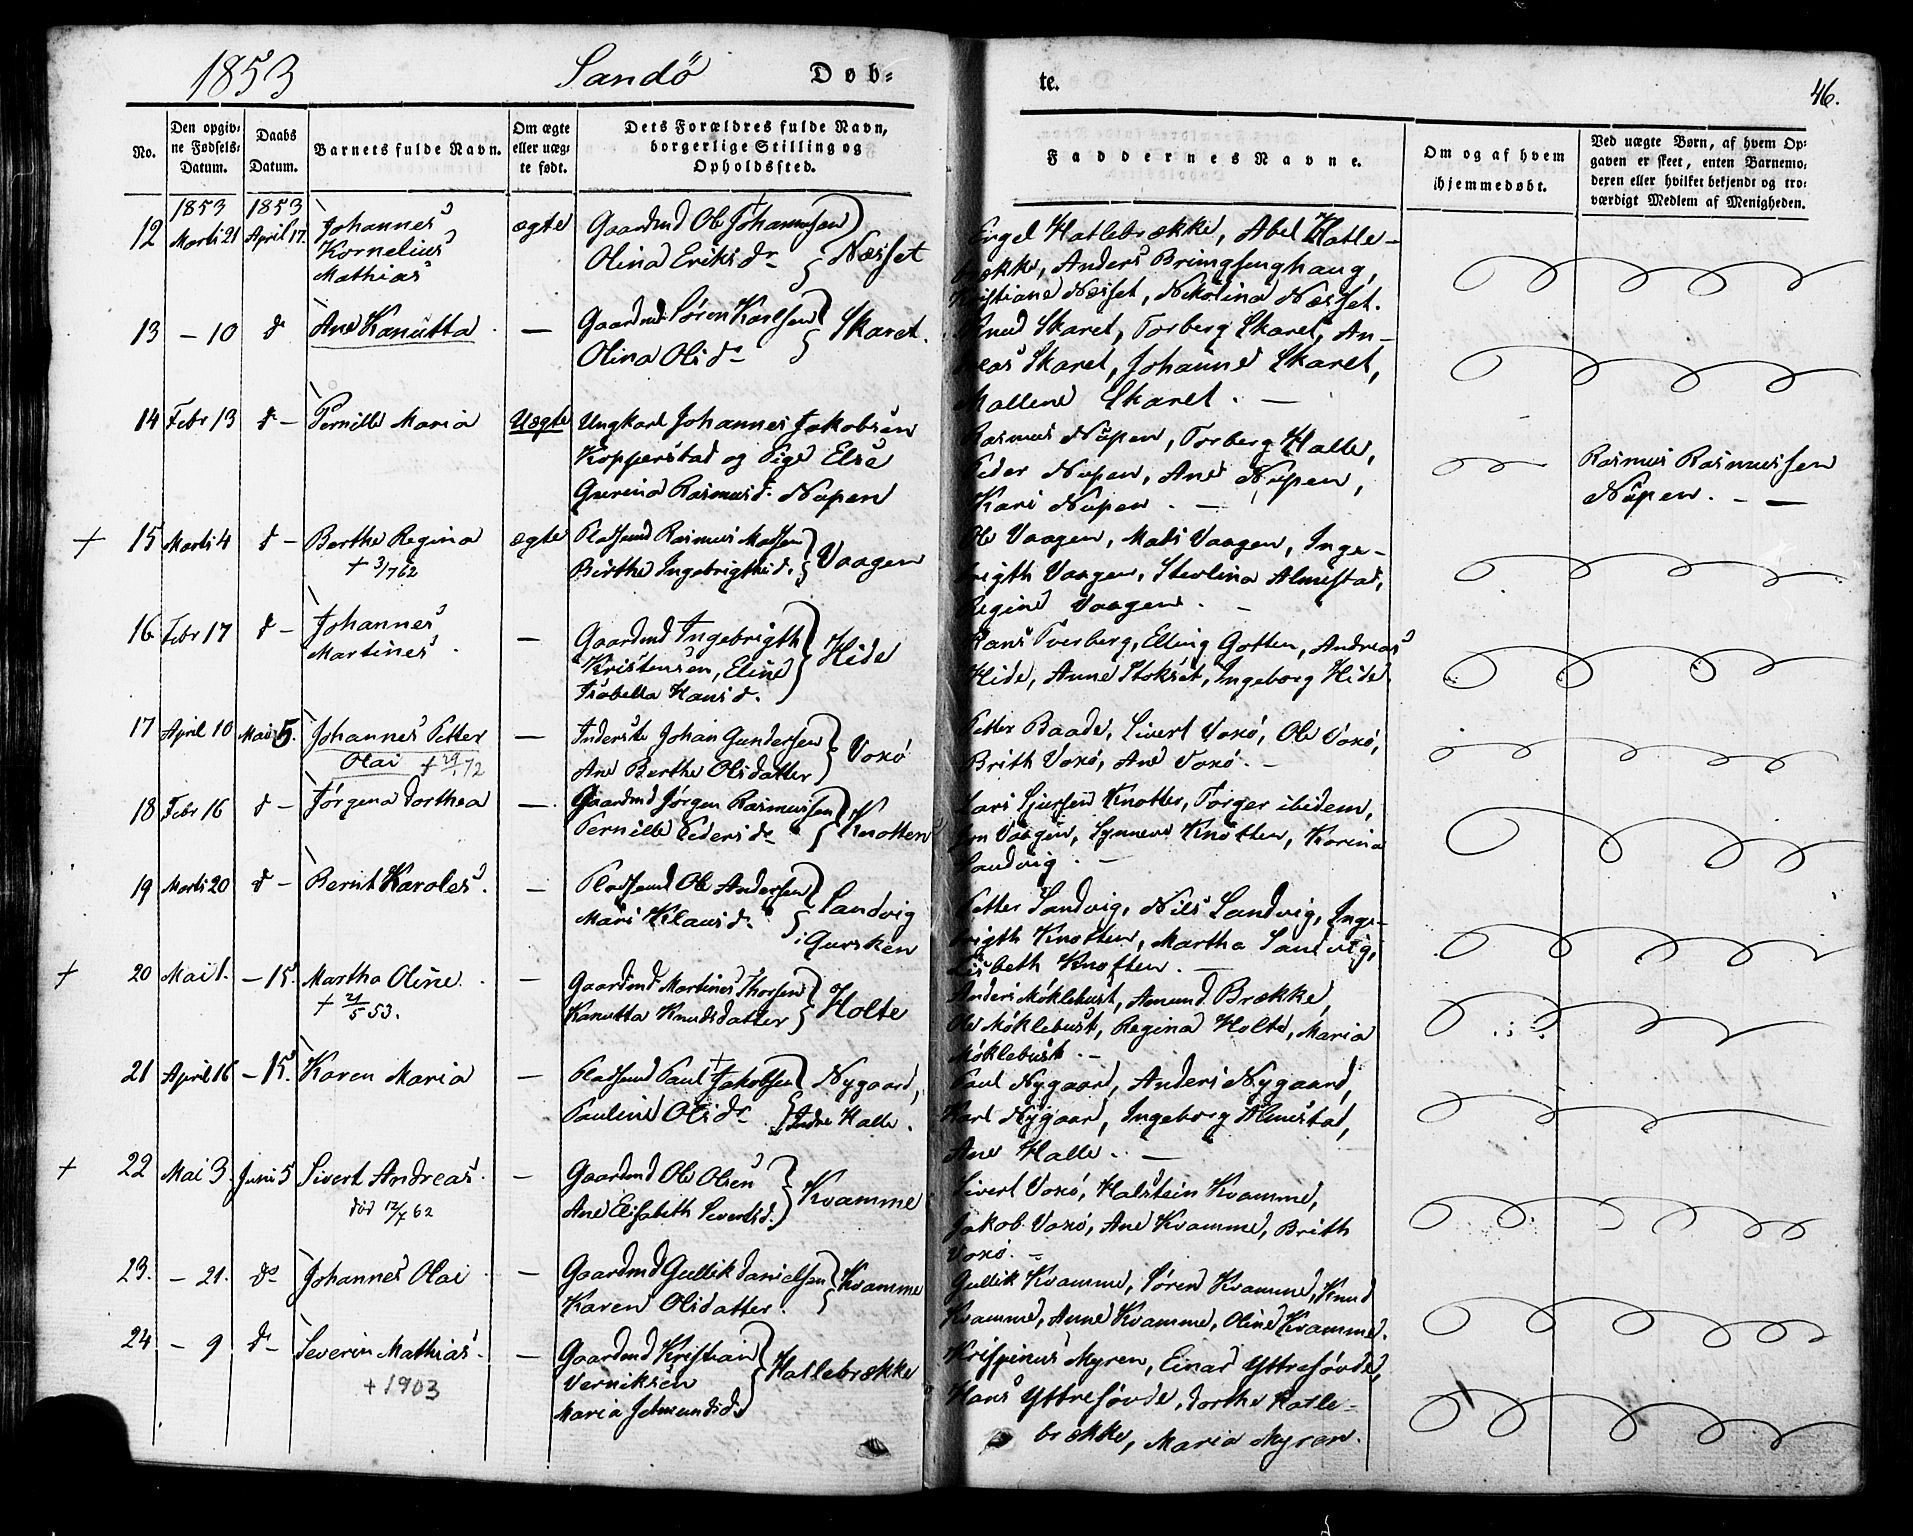 1853 Sandö Døb= te. 46.
No.
Den opgiv=
ne Fødsels=
Datum.
Daabs
Datum.
Barnets fulde Navn.
Om ægte
eller uæg=
te født.
Dets Forældres fulde Navn,
borgerlige Stilling og
Opholdssted.
Faddernes Navne.
Om og af hvem
hjemmedøbt.
Ved uægte Børn, af hvem Op=
gaven er skeet, enten Barnemo=
deren eller hvilket bekjendt og tro=
værdigt Medlem af Menigheden.
1853 1853
12 Marti 21 April 17. Johannes
Kornelius
Mathias
ægte
Gaardmd Ole Johannesen
Olina Eriksdr Næsset
Engel Hatlebrække, Abel Hatle-
brække, Anders Bringsinghaug,
Kristiane Næsset, Nikolina Næsset.
13 - 10 do Ane Kanutta. —
Gaardmd Søren Karlsen
Olina Olsdr Skaret.
Knud Skaret, Torberg Skaret, An-
dreas Skaret, Johanne Skaret,
Mallene Skaret. —
14 Febr 13 do - Pernille Maria Uægte
Ungkarl Johannes Jakobsen
Kopperstad og Pige Else
Gurina Rasmusd. Nupen
Rasmus Nupen, Torberg Halle,
Peder Nupen, Ane Nupen,
Kari Nupen. —
Rasmus Rasmussen
Nupen. — —
+ 15 Marti 4 do - Berthe Regina ægte
+ 3/7 62
Pladsmd Rasmus Madsen
Birthe Ingebrigthsd. Vaagen
Ole Vaagen, Mads Vaagen, Inge-
brigth Vaagen, Stevlina Almestad,
Regine Vaagen. —
16 Febr 17 do - Johannes
Martines. —
Gaardmd Ingebrigth
Kristensen, Eline
Isabella Hansd. Hide
Hans Tverberg, Elling Gotten, Andreas
Hide, Anne Stokset, Ingeborg Hide.
17 April 10 Mai 5. Johannes Petter —
Olai + 29/1 72
Inderste Johan Gundersen
Ane Berthe Olsdatter Voxö
Petter Baade, Sivert Voxö, Ole Voxö,
Brith Voxö, Ane Voxö. —
18 Febr 16 do - Jørgena Dorthea —
Gaardmd Jørgen Rasmussen
Pernille Pedersdr Knotten
Lars Sjursen Knotten, Torger ibidem,
Jon Vaagen, Synneve Knotten, Karina
Sandvig. —
19 Marti 20 do - Bernt Karoles. —
Pladsmd Ole Andersen
Mari Klausdr. Sandvig
i Gursken
Petter Sandvig, Nils Sandvig, Inge-
brigth Knotten, Martha Sandvig,
Lisbeth Knotten. —
+ 20 Mai 1. - 15. Martha Oline. —
+ 21/5 53.
Gaardmd Martines Thorsen
Kanutta Knudsdatter Holte
Anders Möklebust, Amund Brække,
Ole Möklebust, Regina Holte, Maria
Möklebust. —
21 April 16 - 15. Karen Maria —
Pladsmd Paul Jakobsen Nygaard,
Pauline Olsdr Indre Halle.
Paul Nygaard, Anders Nygaard,
Karl Nygaard, Ingeborg Almestad,
Ane Halle. —
+ 22 Mai 3. Juni 5 Sivert Andreas. —
død 12/7 62
Gaardmd Ole Olsen
Ane Elisabeth Sivertsd. Kvamme
Sivert Voxö, Halstein Kvamme,
Jakob Voxö, Ane Kvamme, Brith
Voxö. —
23. - 21. do Johannes Olai —
Gaardmd Gullik Danielsen
Karen Olsdatter. Kvamme
Gullik Kvamme, Søren Kvamme, Knud
Kvamme, Anne Kvamme, Oline Kvamme.
24 - 9 do - Severin Mathias. —
+ 1903
Gaardmd Kristian
Verniksen
Maria Jetmundsd. Hatlebrække
Krispinus Myren, Einar Yttresövde,
Hans Yttresövde, Dorthe Hatle-
brække, Maria Myren.